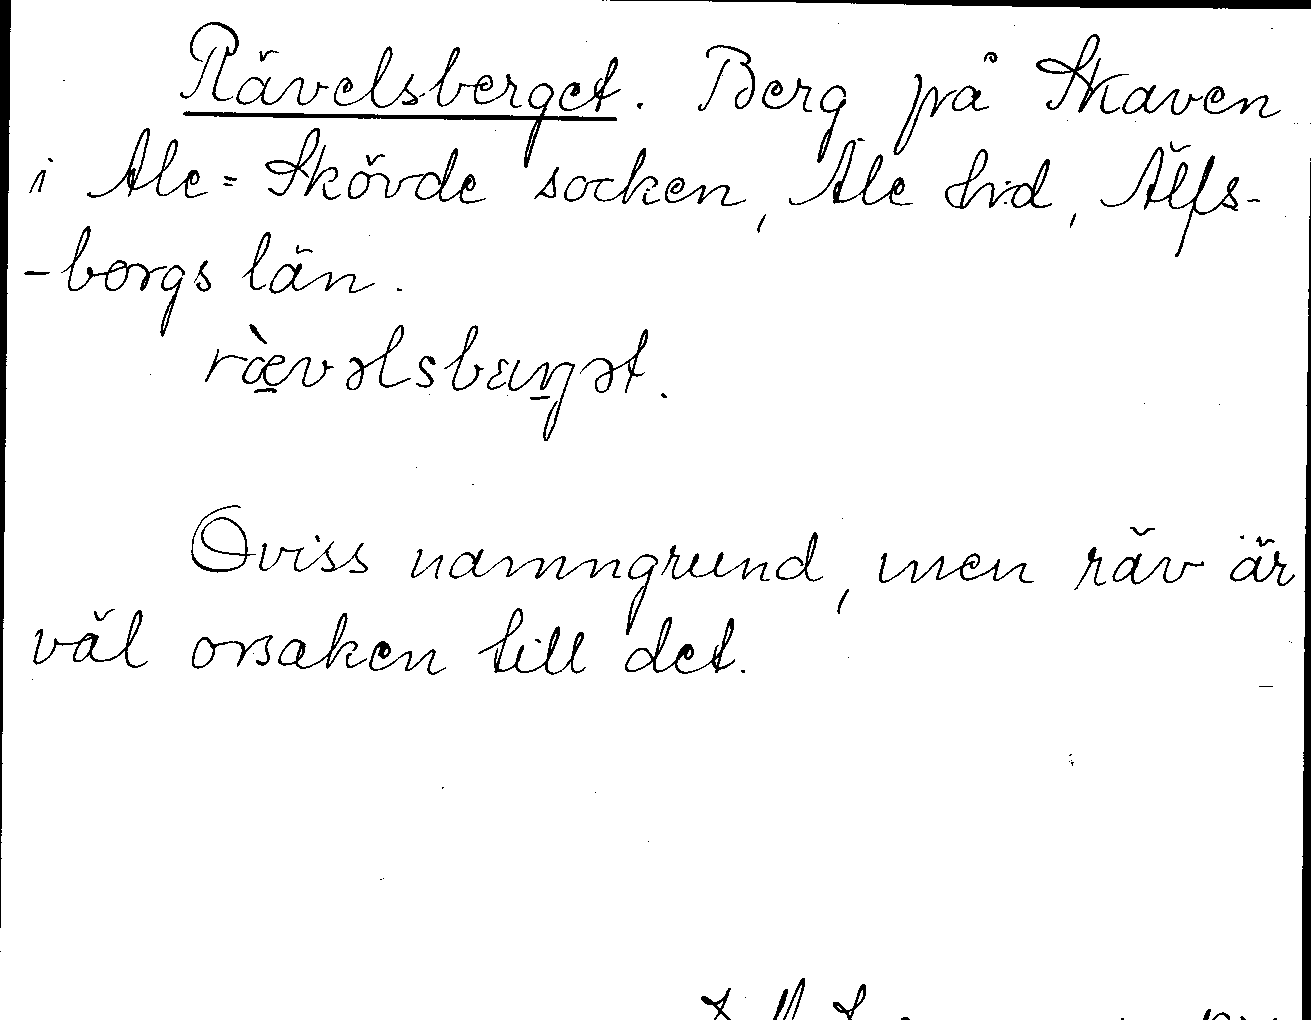 Rävelsberget. Berg på Skaven
i Ale=Skövde socken, Ale hrd, Älfs-
-borgs län.
Oviss namngrund, men räv är
väl orsaken till det.